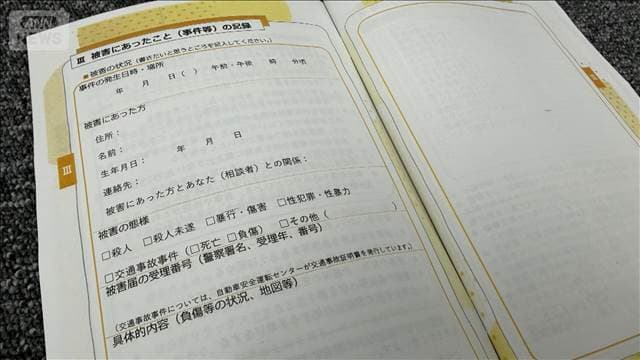 ANN
NEWS
Ⅲ 被害にあったこと（事件等）の記録
■被害の状況（書きたいと思うところを記入してください。）
事件の発生日時・場所
年 月 日（ ） 午前・午後 時 分頃
被害にあった方
住所：
名前：
生年月日： 年 月 日
連絡先：
被害にあった方とあなた（相談者）との関係：
被害の態様
□殺人 □殺人未遂 □暴行・傷害 □性犯罪・性暴力
□交通事故事件（□死亡 □負傷） □その他（ ）
被害届の受理番号（警察署名、受理年、番号）
（交通事故事件については、自動車安全運転センターが交通事故証明書を発行しています。）
具体的内容（負傷等の状況、地図等）
Ⅲ